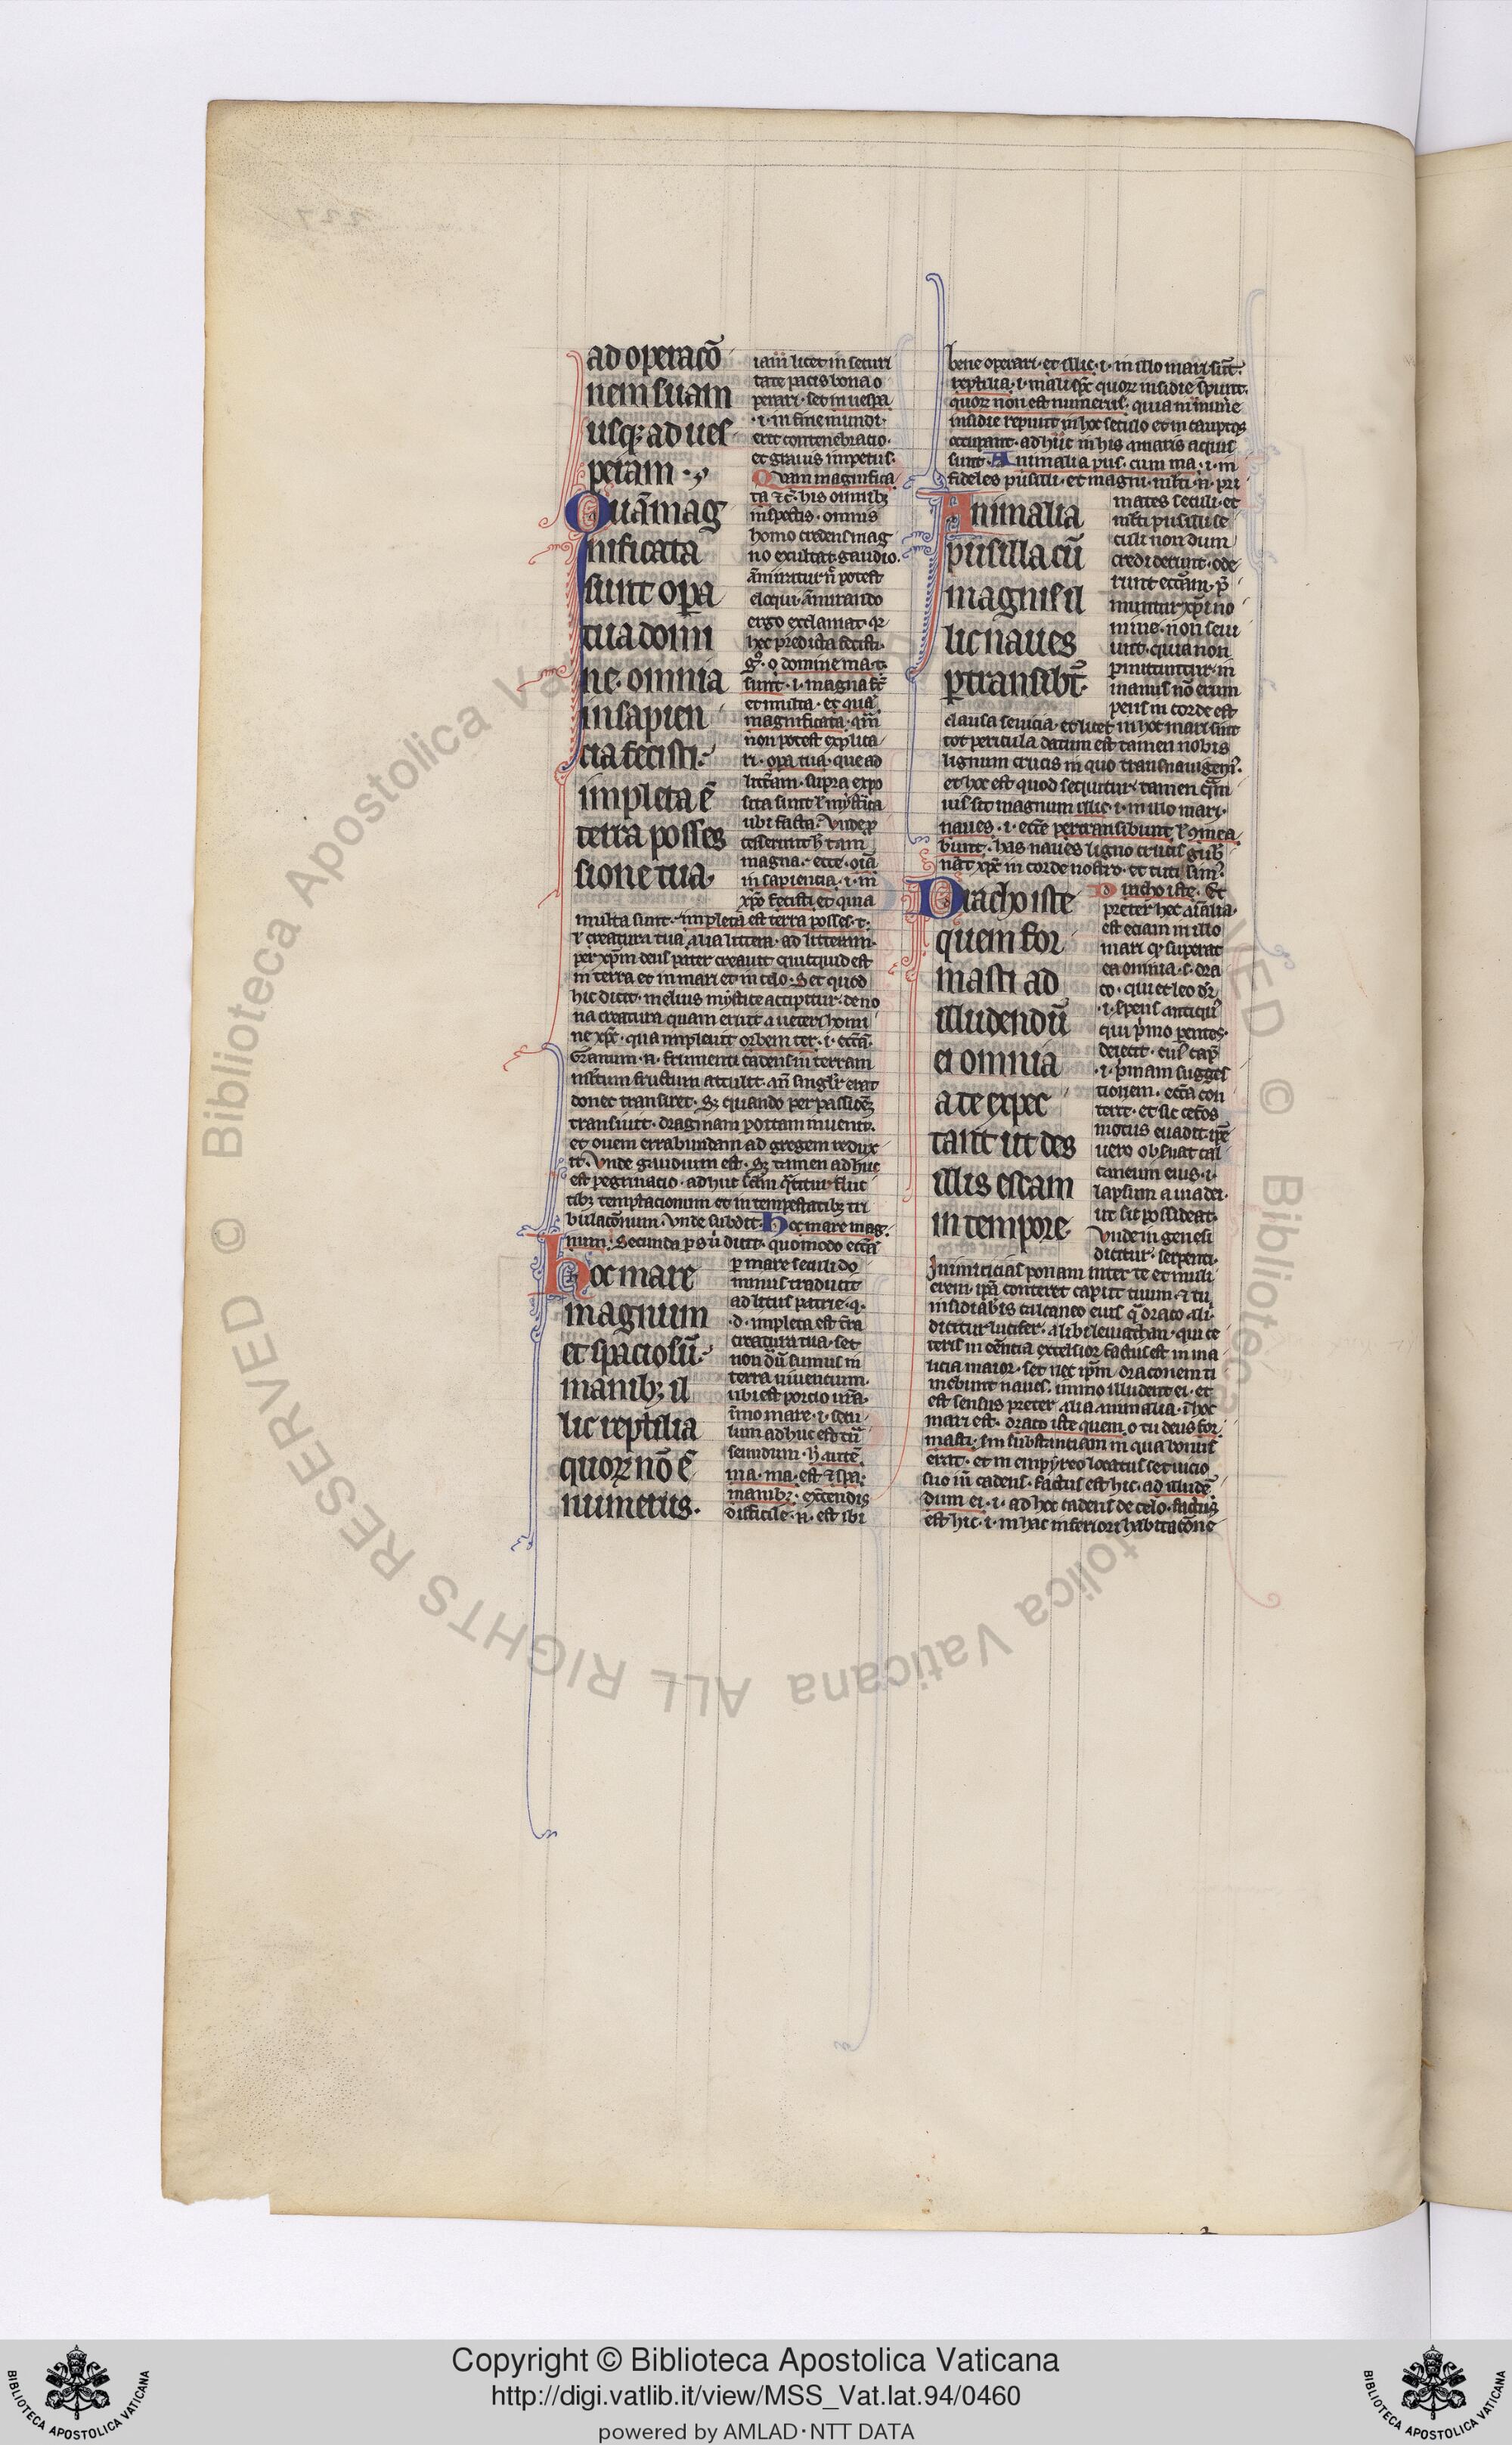 ad operacō
nem suam
usq; ad ues
peram
Quā mag
nificata
sunt opa
tua domi
ne omnia
in sapien
cia fecisti
impleta ē
terra posses
sione tua
iam licet in securi
tate pacis bona o
perari. set in uespa
.i. in fine mundi.
erit contenebracio.
et grauis impetus.
Quam magnifica
ta &c. his omnibz
inspectis. omnis
homo credens mag
no exultat gaudio.
āmiratur qd n̄ potest
eloqui. āmirando
ergo exclamat. qr
hec predicta fecisti.
g°. o domine ma. t.
sunt .i. magna st̄
et multa. et qua
magnificata. qm̄
non potest explica
ri. opa tua. que ad
litt̄am. supra expo
sita sunt l' mystica
ubi facta. Vnde p
cesserunt h̄ tam
magna. ecce. oīa
in sapiencia. i. in
xpo fecisti et quia
multa sunt. impleta est terra posses. t.
l' creatura tua alia littera. ad litteram.
per xpm deus pater creauit quicquid est
in terra et in mari et in celo. Set quod
hic dicit. melius mystice accipitur. de no
ua creatura quam eruit a ueteri homi
ne xpc. qua impleuit orbem ter. i. ecc̄a.
Granum .n. frumenti cadens in terram
multum fructum attulit. qn̄ singlr̄ erat
donec transiret. Sz quando per passionē
transiuit. dragmam portam inuenit.
et ouem errabundam ad gregem redux
it. Vnde gaudium est. Sz tamen adhuc
est pegrinacio. adhuc
tibz temptacionum et in tempestatibz tri
bulacōnum. Vnde subdit. Hoc mare mag
num. Secunda ps ubi dicit. quomodo ecc̄a
hoc mare
magnum
et spaciosū
manibz il
lic reptilia
quorz nō ē
numerus.
p mare seculi do
minus traducit
ad litus patrie. q.
.d. impleta est tr̄a
creatura tua. set
non dū sumus in
terra uiuencium.
ubi est porcio nr̄a.
īmo mare. i. secu
lum adhuc est tū
seuudum. h' autē
ma. ma. est & spa.
manibz. extendis
difficile .n. est ibi
bene operari. et illic. i. in illo mari sūt
reptilia. i. mali spc̄ quorz insidie serpunt.
quorz non est numerus. quia innumē
insidie repunt in hoc seculo et incauptos
occupant. adhuc in his amaris aquis
sunt. Animalia pus. cum ma. i. in
fideles pusilli. et magni. multi .n. pri
Animalia
pusilla cū
magnis il
lic naues
ptransibt̄.
mates seculi. et
multi pusilli se
culi non dum
crediderunt. ode
runt ecc̄am. p̄
muntur xpi no
mine. non seui
unt. quia non
pmittuntur. in
manus nō erum
pens in corde est
clausa seuicia. et licet in hoc mari sint
tot pericula datum est tamen nobis
lignum crucis in quo transnauigem'.
et hoc est quod sequitur. tamen qm̄
uis sit magnum illic. i. in illo mari.
naues. i. ecc̄e pertransibunt l' ōmea
bunt. has naues ligno crucis gub
nat xpc in corde nostro. et tuti sum'.
Dracho iste
quem for
masti ad
illudendū
ei omnia
a te expec
tant ut des
illis escam
in tempore
Dracho iste. Et
preter hec aīalia.
est eciam in illo
mari qd superat
ea omnia. s. dra
co. qui et leo dr̄
.i. spens antiqu'
qui pmo parentes
deiecit. cui' cap̄
.i. pmam sugges
tionem. ecc̄a con
terit. et sic cetos
motus euadit. ipē
uero obseruat cal
caneum eius. i.
lapsum a uia dei.
ut sic possideat.
Vnde in genesi
dicitur. serpenti.
Inimicicias ponam inter te et muli
erem. ipa conteret caput tuum. & tu
insidiabis calcaneo eius q' draco ali
dicitur lucifer. alibi leuiathan. qui ce
teris in cēncia excelsior factus est in ma
licia maior. set nec ipm draconem ti
mebunt naues. immo illudent ei. et
est sensus preter alia animalia. ī hoc
mari est. draco iste quem o tu deus for
masti. sm substanciam in qua bonus
erat. et in empyreo locatus set uicio
suo in̄ cadens. factus est hic. ad illudē
dum ei. i. ad hoc cadens de celo. factus
est hic. i. in hac inferiori habitacōne
Biblioteca Apostolica Vaticana ALL RIGHTS RESERVED ©
Copyright © Biblioteca Apostolica Vaticana
http://digi.vatlib.it/view/MSS_Vat.lat.94/0460
powered by AMLAD·NTT DATA
BIBLIOTECA APOSTOLICA VATICANA
BIBLIOTECA APOSTOLICA VATICANA